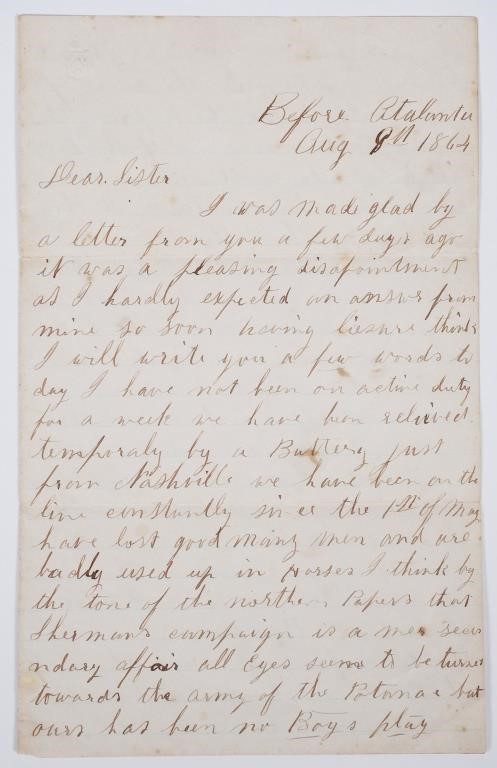 Before Atalanta
Aug 8th 1864
Dear Sister
I was made glad by
a letter from you a few days ago
it was a pleasing disapointment
as I hardly expected an answr from
mine so soon having liesure think
I will write you a few words to
day I have not been on active duty
for a week we have been relieved
temporaly by a Battery just
from Nashville we have been on the
line constantly since the 1st of May
have lost good many men and are
badly used up in horses I think by
the tone of the northern Papers that
Shermans campaign is a mer secu
ndary affair all Eyes seems to be turned
towards the army of the Potomac but
ours has been no Boys play